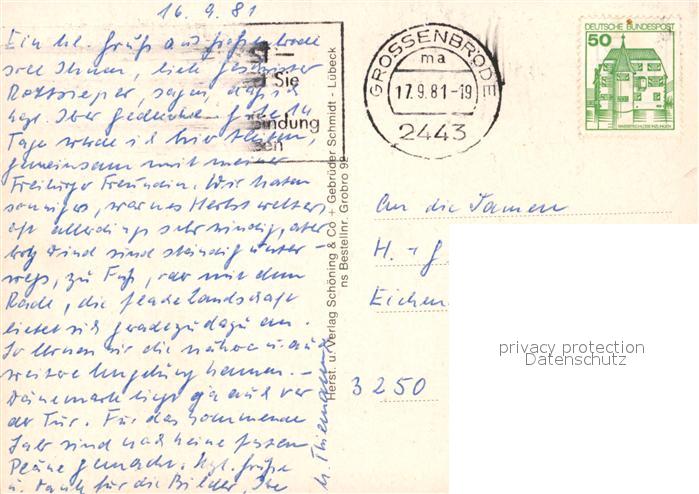 16.9.81
Ein kl. Gruß aus Großenbrode
soll Ihnen, liebe Geschwister
sagen, daß ich
hzl. Ihrer gedenke. Gute 14
Tage werde ich hier bleiben,
gemeinsam mit meiner
Freiburger Freundin. Wir haben
sonniges, warmes Herbstwetter,
oft allerdings sehr windig, aber
trotz Wind sind ständig unter-
wegs, zu Fuß, oder mit dem
Rade, die flache Landschaft
bietet sich geradezu dazu an.
So lernen wir die nähere u. auch
weitere Umgebung kennen. -
Dänemark liegt ja auch vor
der Tür. Für das kommende
Jahr sind noch keine festen
Pläne gemacht. Hzl. Grüße
u. Dank für die Bilder, Ihre
Sie
indung
GROSSENBRODE
ma
17.9.81-19
2443
DEUTSCHE BUNDESPOST
50
WASSERSCHLOSS INZLINGEN
Herst. u. Verlag Schöning & Co + Gebrüder Schmidt - Lübeck
ns Bestellnr. Grobro 92
An die Damen
H. + G.
Eichen
3250
privacy protection
Datenschutz